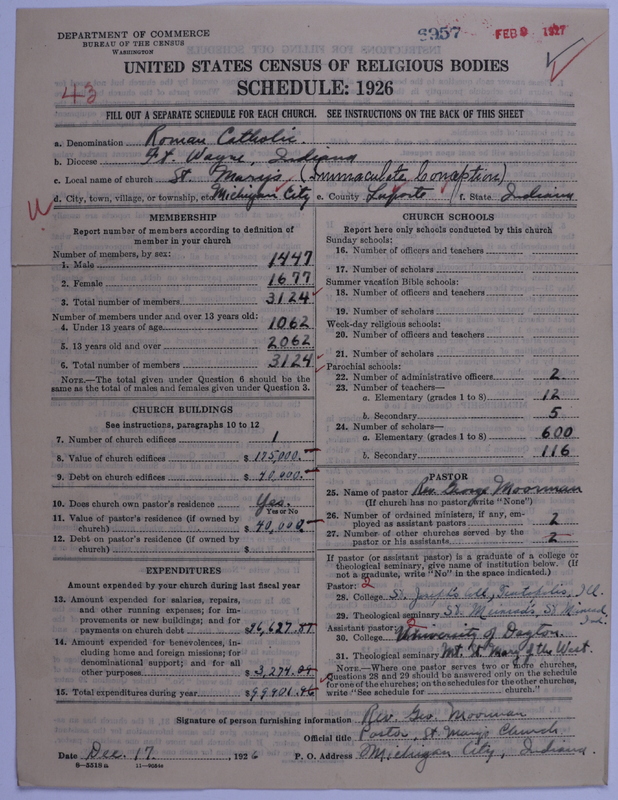 DEPARTMENT OF COMMERCE
BUREAU OF THE CENSUS
WASHINGTON
8957
FEB 9 1927
UNITED STATES CENSUS OF RELIGIOUS BODIES
SCHEDULE: 1926
43
FILL OUT A SEPARATE SCHEDULE FOR EACH CHURCH. SEE INSTRUCTIONS ON THE BACK OF THIS SHEET
a. Denomination Roman Catholic
b. Diocese Ft. Wayne, Indiana
c. Local name of church St. Mary's (Immaculate Conception)
d. City, town, village, or township, etc. Michigan City e. County Laporte f. State Indiana
MEMBERSHIP
Report number of members according to definition of
member in your church
Number of members, by sex:
1. Male 1447
2. Female 1677
3. Total number of members 3124
Number of members under and over 13 years old:
4. Under 13 years of age 1062
5. 13 years old and over 2062
6. Total number of members 3124
NOTE.—The total given under Question 6 should be
same as the total of males and females given under Question 3.
CHURCH BUILDINGS
See instructions, paragraphs 10 to 12
7. Number of church edifices 1
8. Value of church edifices $ 175,000.
9. Debt on church edifices $ 40,000.
10. Does church own pastor's residence Yes.
Yes or No
11. Value of pastor's residence (if owned by
church) $ 40,000
12. Debt on pastor's residence (if owned by
church) $
EXPENDITURES
Amount expended by your church during last fiscal year
13. Amount expended for salaries, repairs,
and other running expenses; for im-
provements or new buildings; and for
payments on church debt
14. Amount expended for benevolences, in-
cluding home and foreign missions; for
denominational support; and for all
other purposes $
15. Total expenditures during year $
CHURCH SCHOOLS
Report here only schools conducted by this church
Sunday schools:
16. Number of officers and teachers
17. Number of scholars
Summer vacation Bible schools:
18. Number of officers and teachers
19. Number of scholars
Week-day religious schools:
20. Number of officers and teachers
21. Number of scholars
Parochial schools:
22. Number of administrative officers 2
23. Number of teachers—
a. Elementary (grades 1 to 8) 12
b. Secondary 5
24. Number of scholars—
a. Elementary (grades 1 to 8) 600
b. Secondary 116
PASTOR
25. Name of pastor Rev. George Moorman
(If church has no pastor, write "None")
26. Number of ordained ministers, if any, em-
ployed as assistant pastors 2
27. Number of other churches served by the
pastor or his assistants 2
If pastor (or assistant pastor) is a graduate of a college or
theological seminary, give name of institution below. (If
not a graduate, write "No" in the space indicated.)
Pastor: 2
28. College St. Joseph's Coll, Teutopolis, Ill.
29. Theological seminary St. Meinrad's, St. Meinrad Ind.
Assistant pastor: 2
30. College University of Dayton
31. Theological seminary Mt. St. Mary of the West.
NOTE.—Where one pastor serves two or more churches,
Questions 28 and 29 should be answered only on the schedule
for one of the churches; on the schedules for the other churches,
write "See schedule for church."
Signature of person furnishing information Rev. Geo. Moorman
Official title Pastor, St. Mary's Church
Date Dec. 17, 1926 P. O. Address Michigan City, Indiana.
8—5518a 11—9034a